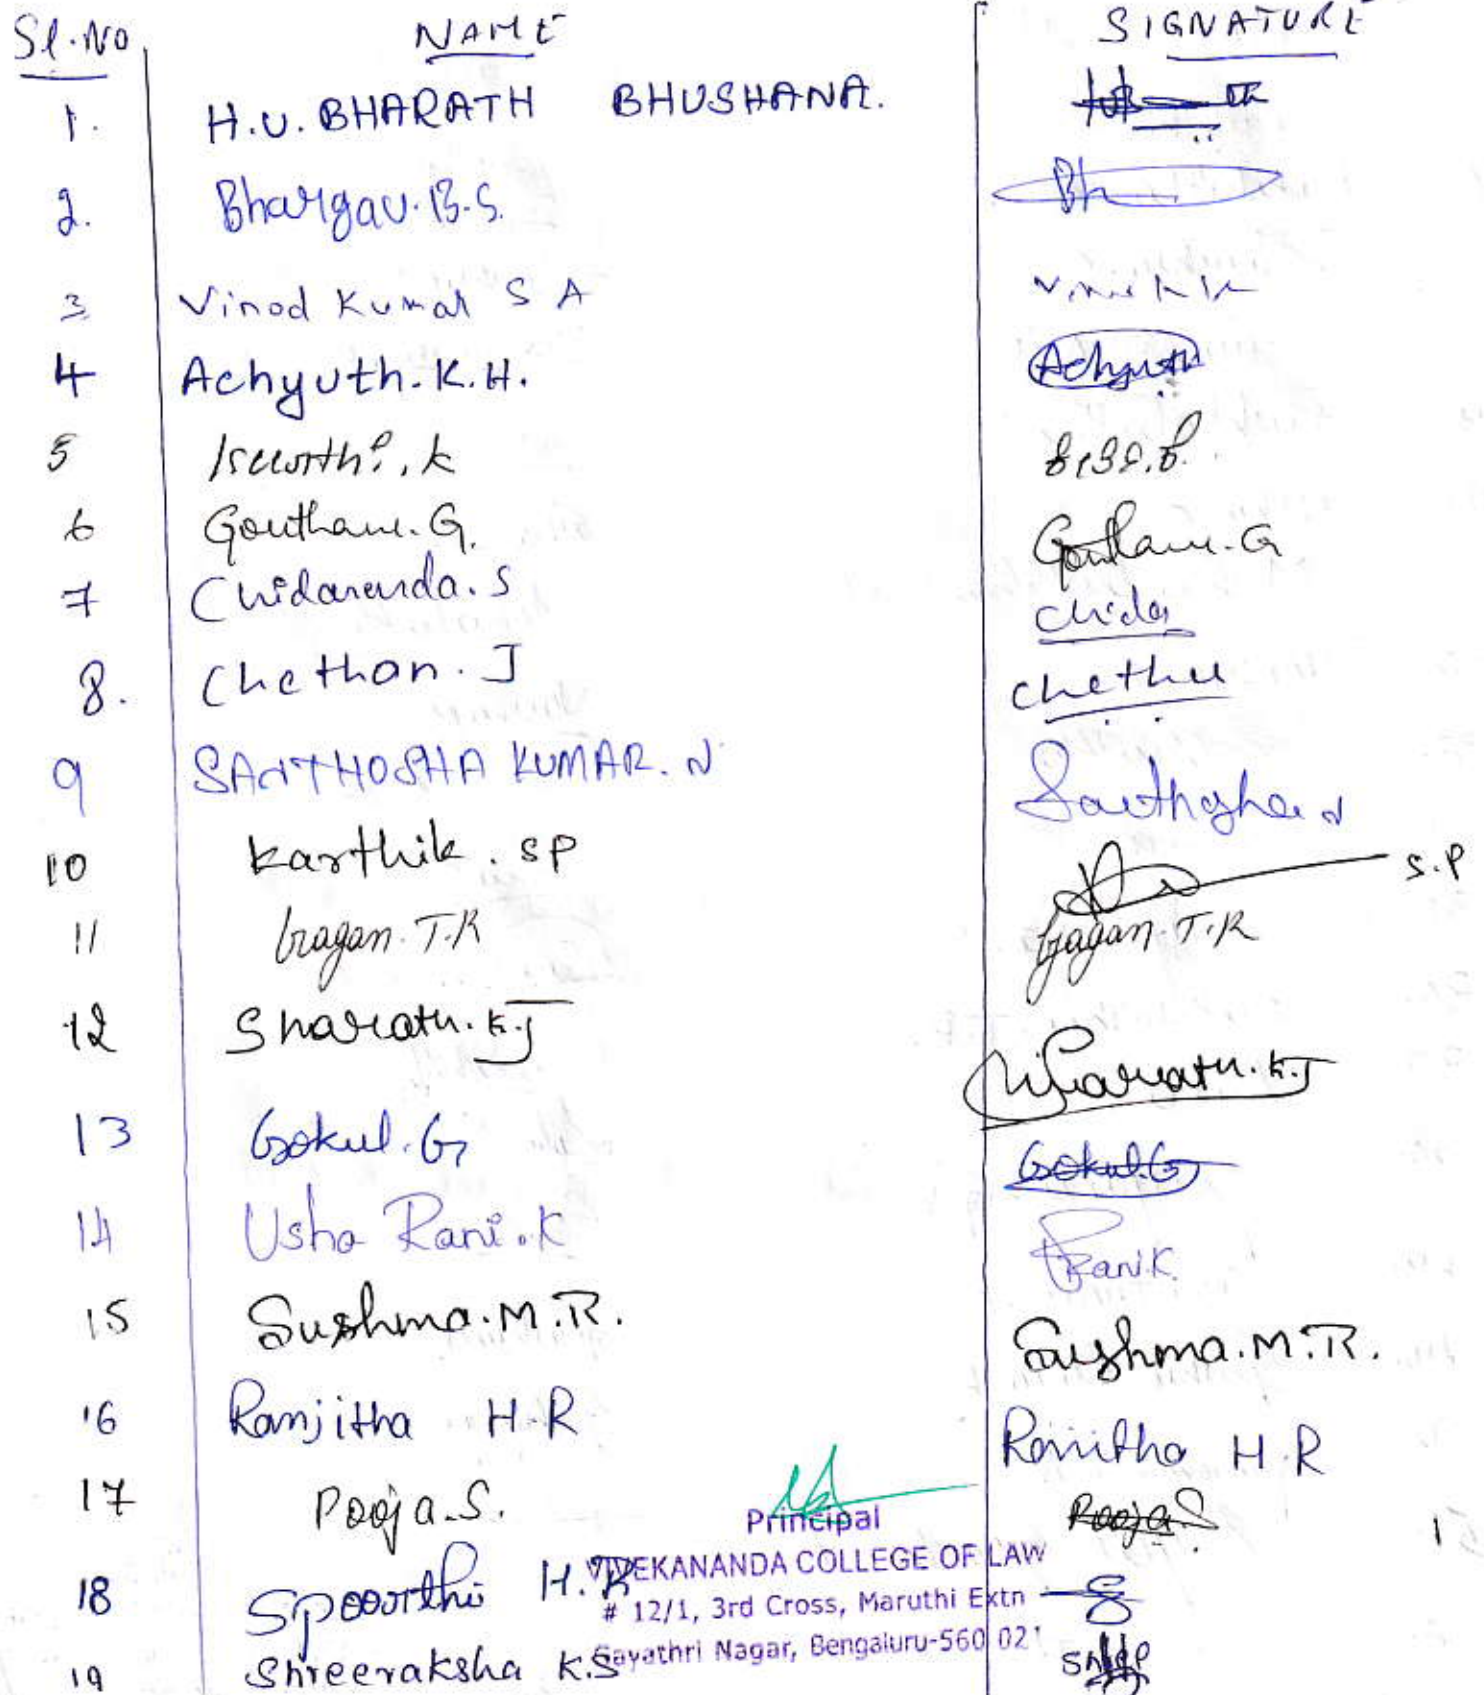 Sl.No NAME SIGNATURE
1. H.U. BHARATH BHUSHANA.
2. Bhargav.B.S. Bh
3 Vinod Kumar S A
4 Achyuth.K.H. Achyuth
5 .K
6 Goutham.G. Goutham.G
7 Chidananda.S Chida
8. Chethan.J Chethu
9 SANTHOSHA KUMAR.N Santhosha N
10 Karthik.SP S.P
11 Gagan.T.R Gagan.T.R
12 Sharath.K.J Sharath.K.J
13 Gokul.G Gokul.G
14 Usha Rani.K Rani.K.
15 Sushma.M.R. Sushma.M.R.
16 Ranjitha H.R Ranjitha H.R
17 Pooja.S. Pooja.S
Principal
VIVEKANANDA COLLEGE OF LAW
18 Spoorthi H.R
# 12/1, 3rd Cross, Maruthi Extn
Gayathri Nagar, Bengaluru-560 021
19 Shreeraksha K.S